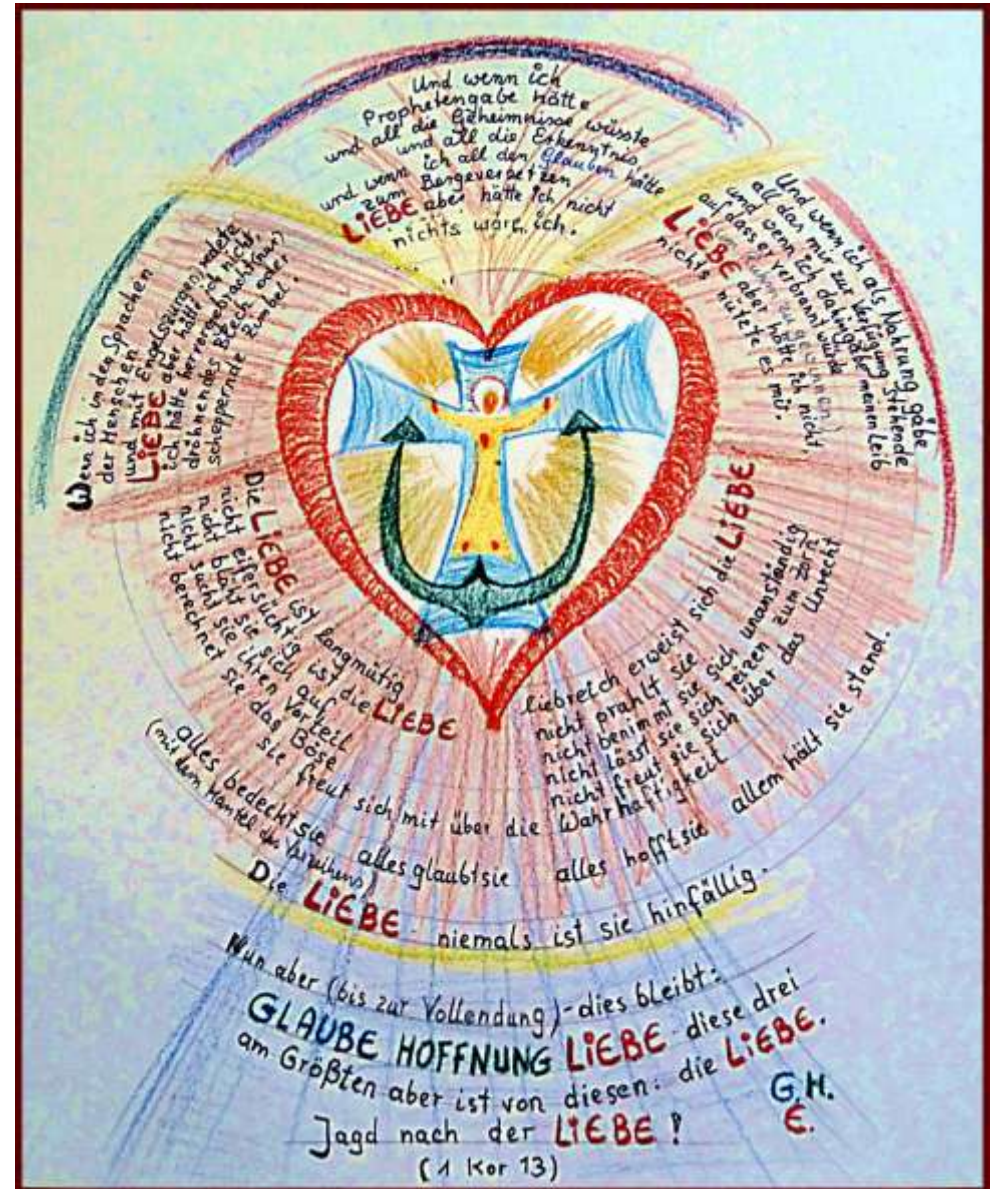 Wenn ich in den Sprachen
der Menschen
und mit Engelszungen redete
LiEBE aber hätt' ich nicht,
ich hätte hervorgebracht
dröhnendes Blech oder
schepppernde Bimbel!
Und wenn ich
Prophetengabe hätte
und all die Geheimnisse wüsste
und all die Erkenntnis
und wenn ich all den Glauben hätte
zum Bergeversetzen
LiEBE aber hätte ich nicht
nichts wäre ich.
Und wenn ich als Nahrung gäbe
all das mir zur Verfügung Stehende
und wenn ich dahingäbe meinen Leib
auf dass er verbrannt würde
LiEBE aber hätte ich nicht
nichts nützte es mir.
Die LiEBE ist langmütig
nicht eifersüchtig ist die LiEBE
nicht bläht sie sich auf
nicht sucht sie ihren Vorteil
nicht berechnet sie das Böse
liebreich erweist sich die LiEBE!
nicht prahlt sie
nicht benimmt sie sich unanständig
nicht lässt sie sich reizen zum Zorn
nicht freut sie sich über das Unrecht
sie freut sich mit über die Wahrhaftigkeit
alles bedeckt sie alles glaubt sie alles hofft sie allem hält sie stand.
(mit dem Mantel des Verzeihens)
Die LiEBE - niemals ist sie hinfällig.
Nun aber (bis zur Vollendung) - dies bleibt:
GLAUBE HOFFNUNG LiEBE diese drei
am Größten aber ist von diesen: die LiEBE.
Jagd nach der LiEBE!
(1 Kor 13)
G.H.
E.